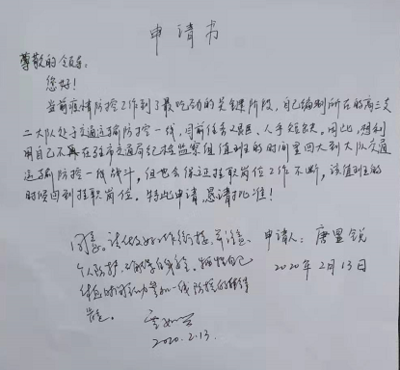 申请书
尊敬的领导：
您好！
当前疫情防控工作到了最吃劲的关键阶段，自己编制所在的高三支
二大队处于交通运输防控一线，目前任务艰巨、人手短缺。因此，想利
用自己不在驻市交通局纪检监察组值班的时间里回大到大队交通
运输防控一线战斗，但也会保证挂职岗位工作不断，该值班的
时候回到挂职岗位。特此申请，恳请批准！
同意。请做好工作衔接，并注意
申请人：唐盟锐
个人防护
2020年2月13日
休息时间 参加一线防控的
2020.2.13.